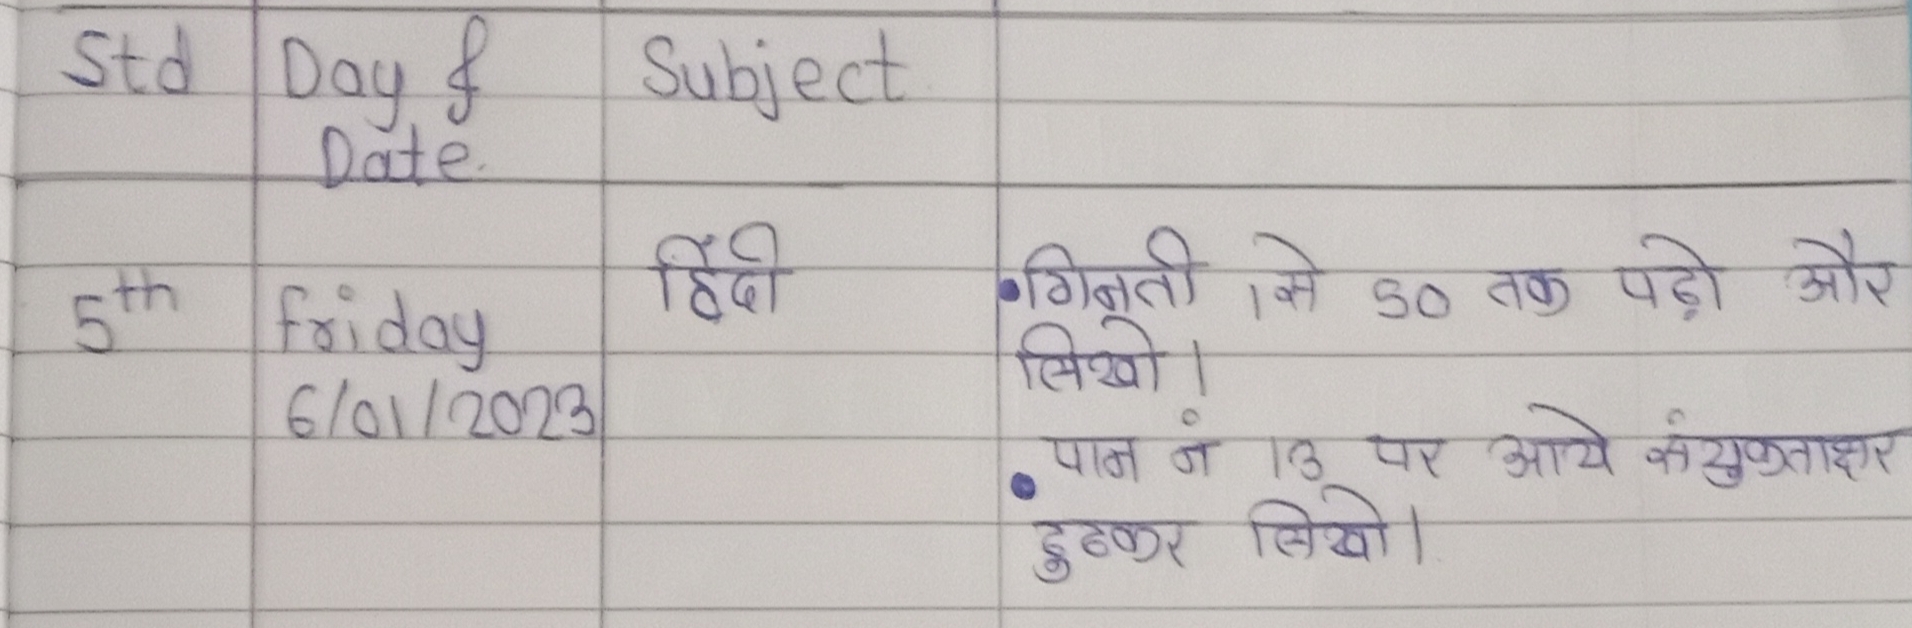 Std Day & Subject
Date.
हिंदी •गिनती 1 से 50 तक पढ़ो और
5th Friday लिखो।
6/01/2023
• पान नं 13 पर आये संयुकताक्षर
ढुढकर लिखो।